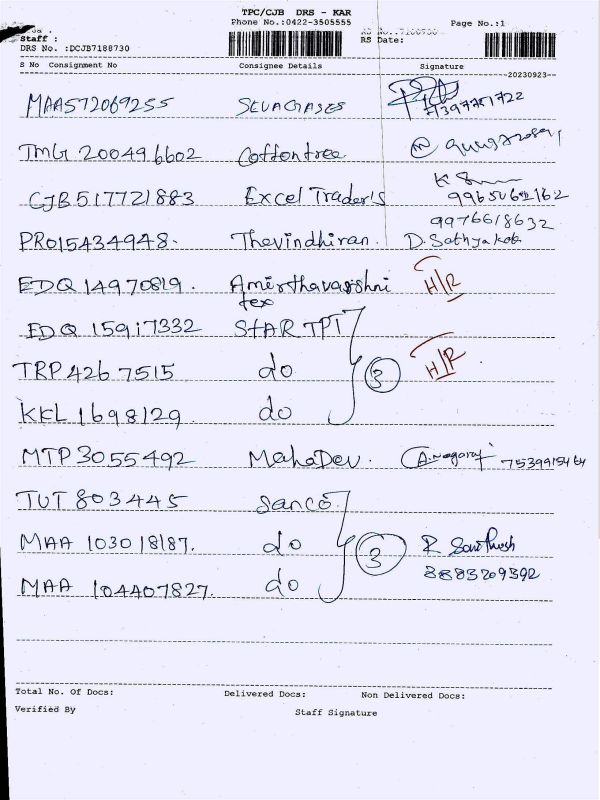 TPC/CJB DRS - KAR
Phone No.:0422-3505555 Page No.:1
Staff :
DRS No. :DCJB7188730 RS Date:
S No Consignment No Consignee Details Signature
--20230923--
MAA572069255 SELVAGASES
TMG 200496602 Cottontree
CJB517721883 Excel Trader's K
9976618632
PRO15434948. Thevindhiran. D. Sathya
EDQ 14970819. Amirthavarshni H/R
tex
EDQ 15917332 STAR TPT
TRP 4267515 do 3 H/R.
KKL 1698129. do
MTP3055492 MahaDev. A.nagaraj 7539915464
TUT 803445 Sanco
MAA 103018187. do 3 R Santhosh
MAA 104407827. do 8883209392
Total No. Of Docs: Delivered Docs: Non Delivered Docs:
Verified By Staff Signature